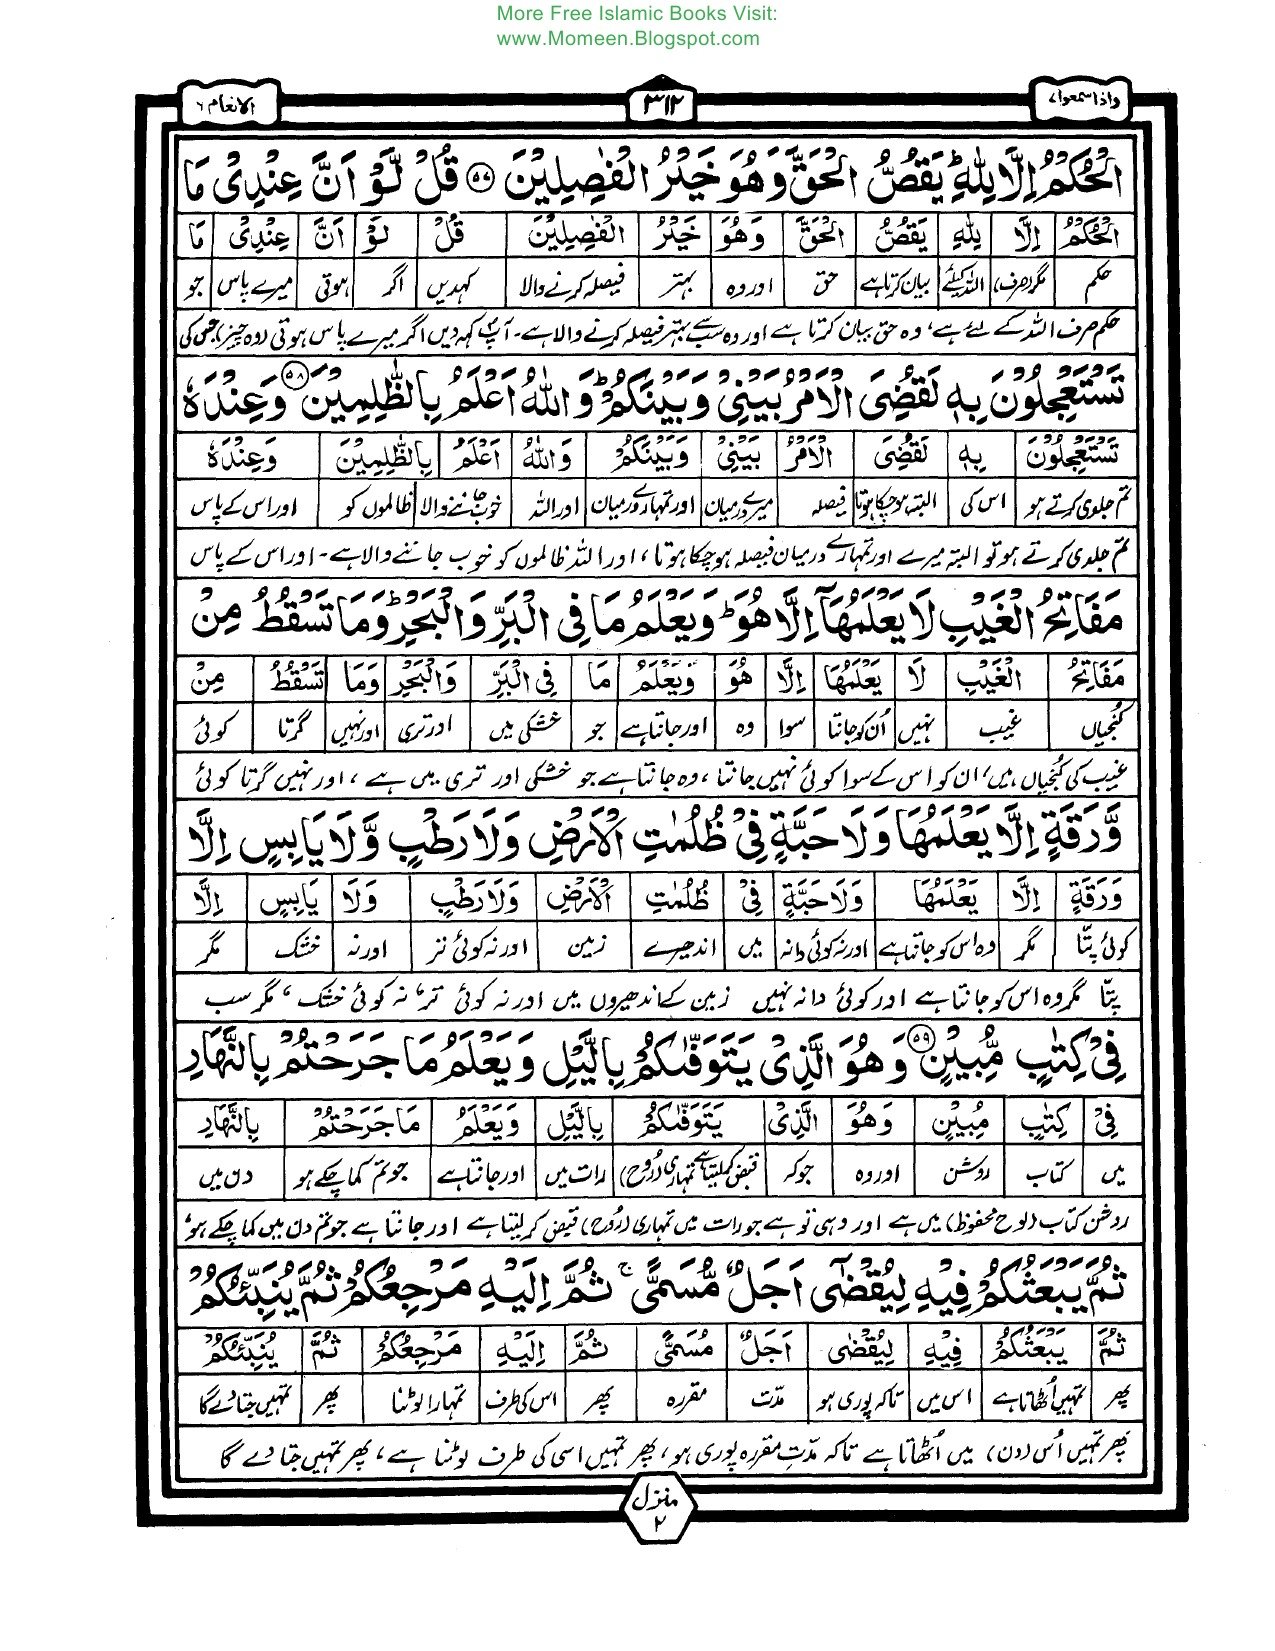 More Free Islamic Books Visit:
www.Momeen.Blogspot.com
واذاسمعوا ٧ ٣١٢ الانعام ٦
الْحُكْمُ اِلَّا لِلّٰهِ ؕ يَقُصُّ الْحَقَّ وَهُوَ خَيْرُ الْفٰصِلِيْنَ ۝۵۷ قُلْ لَّوْ اَنَّ عِنْدِىْ مَا
الْحُكْمُ اِلَّا لِلّٰهِ يَقُصُّ الْحَقَّ وَهُوَ خَيْرُ الْفٰصِلِيْنَ قُلْ لَوْ اَنَّ عِنْدِىْ مَا
حکم مگر(صرف) اللہ کیلئے بیان کرتا ہے حق اور وہ بہتر فیصلہ کرنے والا کہدیں اگر ہوتی میرے پاس جو
حکم صرف اللہ کے لئے ہے، وہ حق بیان کرتا ہے اور وہ سب سے بہتر فیصلہ کرنے والا ہے۔ آپ کہہ دیں اگر میرے پاس ہوتی (وہ چیز) جس کی
تَسْتَعْجِلُوْنَ بِهٖ لَقُضِىَ الْاَمْرُ بَيْنِىْ وَبَيْنَكُمْ ؕ وَاللّٰهُ اَعْلَمُ بِالظّٰلِمِيْنَ ۝۵۸ وَعِنْدَهٗ
تَسْتَعْجِلُوْنَ بِهٖ لَقُضِىَ الْاَمْرُ بَيْنِىْ وَبَيْنَكُمْ وَاللّٰهُ اَعْلَمُ بِالظّٰلِمِيْنَ وَعِنْدَهٗ
تم جلدی کرتے ہو اس کی البتہ ہوچکا ہوتا فیصلہ میرے درمیان اور تمہارے درمیان اور اللہ خوب جاننے والا ظالموں کو اور اس کے پاس
تم جلدی کرتے ہو تو البتہ میرے اور تمہارے درمیان فیصلہ ہوچکا ہوتا، اور اللہ ظالموں کو خوب جاننے والا ہے۔ اور اس کے پاس
مَفَاتِحُ الْغَيْبِ لَا يَعْلَمُهَاۤ اِلَّا هُوَ ؕ وَيَعْلَمُ مَا فِى الْبَرِّ وَالْبَحْرِ ؕ وَمَا تَسْقُطُ مِنْ
مَفَاتِحُ الْغَيْبِ لَا يَعْلَمُهَا اِلَّا هُوَ وَيَعْلَمُ مَا فِى الْبَرِّ وَالْبَحْرِ وَمَا تَسْقُطُ مِنْ
کنجیاں غیب نہیں اُن کو جانتا سوا وہ اور جانتا ہے جو خشکی میں اور تری اور نہیں گرتا کوئی
غیب کی کنجیاں ہیں، ان کو اس کے سوا کوئی نہیں جانتا، وہ جانتا ہے جو خشکی اور تری میں ہے، اور نہیں گرتا کوئی
وَّرَقَةٍ اِلَّا يَعْلَمُهَا وَلَا حَبَّةٍ فِىْ ظُلُمٰتِ الْاَرْضِ وَلَا رَطْبٍ وَّلَا يَابِسٍ اِلَّا
وَرَقَةٍ اِلَّا يَعْلَمُهَا وَلَا حَبَّةٍ فِىْ ظُلُمٰتِ الْاَرْضِ وَلَا رَطْبٍ وَلَا يَابِسٍ اِلَّا
کوئی پتّا مگر وہ اس کو جانتا ہے اور نہ کوئی دانہ میں اندھیرے زمین اور نہ کوئی تر اور نہ خشک مگر
پتّا مگر وہ اس کو جانتا ہے اور کوئی دانہ نہیں زمین کے اندھیروں میں اور نہ کوئی تر، نہ کوئی خشک، مگر سب
فِىْ كِتٰبٍ مُّبِيْنٍ ۝۵۹ وَهُوَ الَّذِىْ يَتَوَفّٰىكُمْ بِالَّيْلِ وَيَعْلَمُ مَا جَرَحْتُمْ بِالنَّهَارِ
فِىْ كِتٰبٍ مُبِيْنٍ وَهُوَ الَّذِىْ يَتَوَفّٰىكُمْ بِالَّيْلِ وَيَعْلَمُ مَا جَرَحْتُمْ بِالنَّهَارِ
میں کتاب روشن اور وہ جو کہ قبض کرلیتا ہے تمہاری (روح) رات میں اور جانتا ہے جو تم کما چکے ہو دن میں
روشن کتاب (لوح محفوظ) میں ہے اور وہی تو ہے جو رات میں تمہاری (روح) قبض کرلیتا ہے اور جانتا ہے جو تم دن میں کما چکے ہو،
ثُمَّ يَبْعَثُكُمْ فِيْهِ لِيُقْضٰٓى اَجَلٌ مُّسَمًّى ۚ ثُمَّ اِلَيْهِ مَرْجِعُكُمْ ثُمَّ يُنَبِّئُكُمْ
ثُمَّ يَبْعَثُكُمْ فِيْهِ لِيُقْضٰى اَجَلٌ مُسَمًّى ثُمَّ اِلَيْهِ مَرْجِعُكُمْ ثُمَّ يُنَبِّئُكُمْ
پھر تمہیں اُٹھاتا ہے اس میں تاکہ پوری ہو مدّت مقررہ پھر اس کی طرف تمہارا لوٹنا پھر تمہیں جتا دے گا
پھر تمہیں اُس (دن) میں اُٹھاتا ہے تاکہ مدّتِ مقررہ پوری ہو، پھر تمہیں اسی کی طرف لوٹنا ہے، پھر تمہیں جتا دے گا
منزل
٢